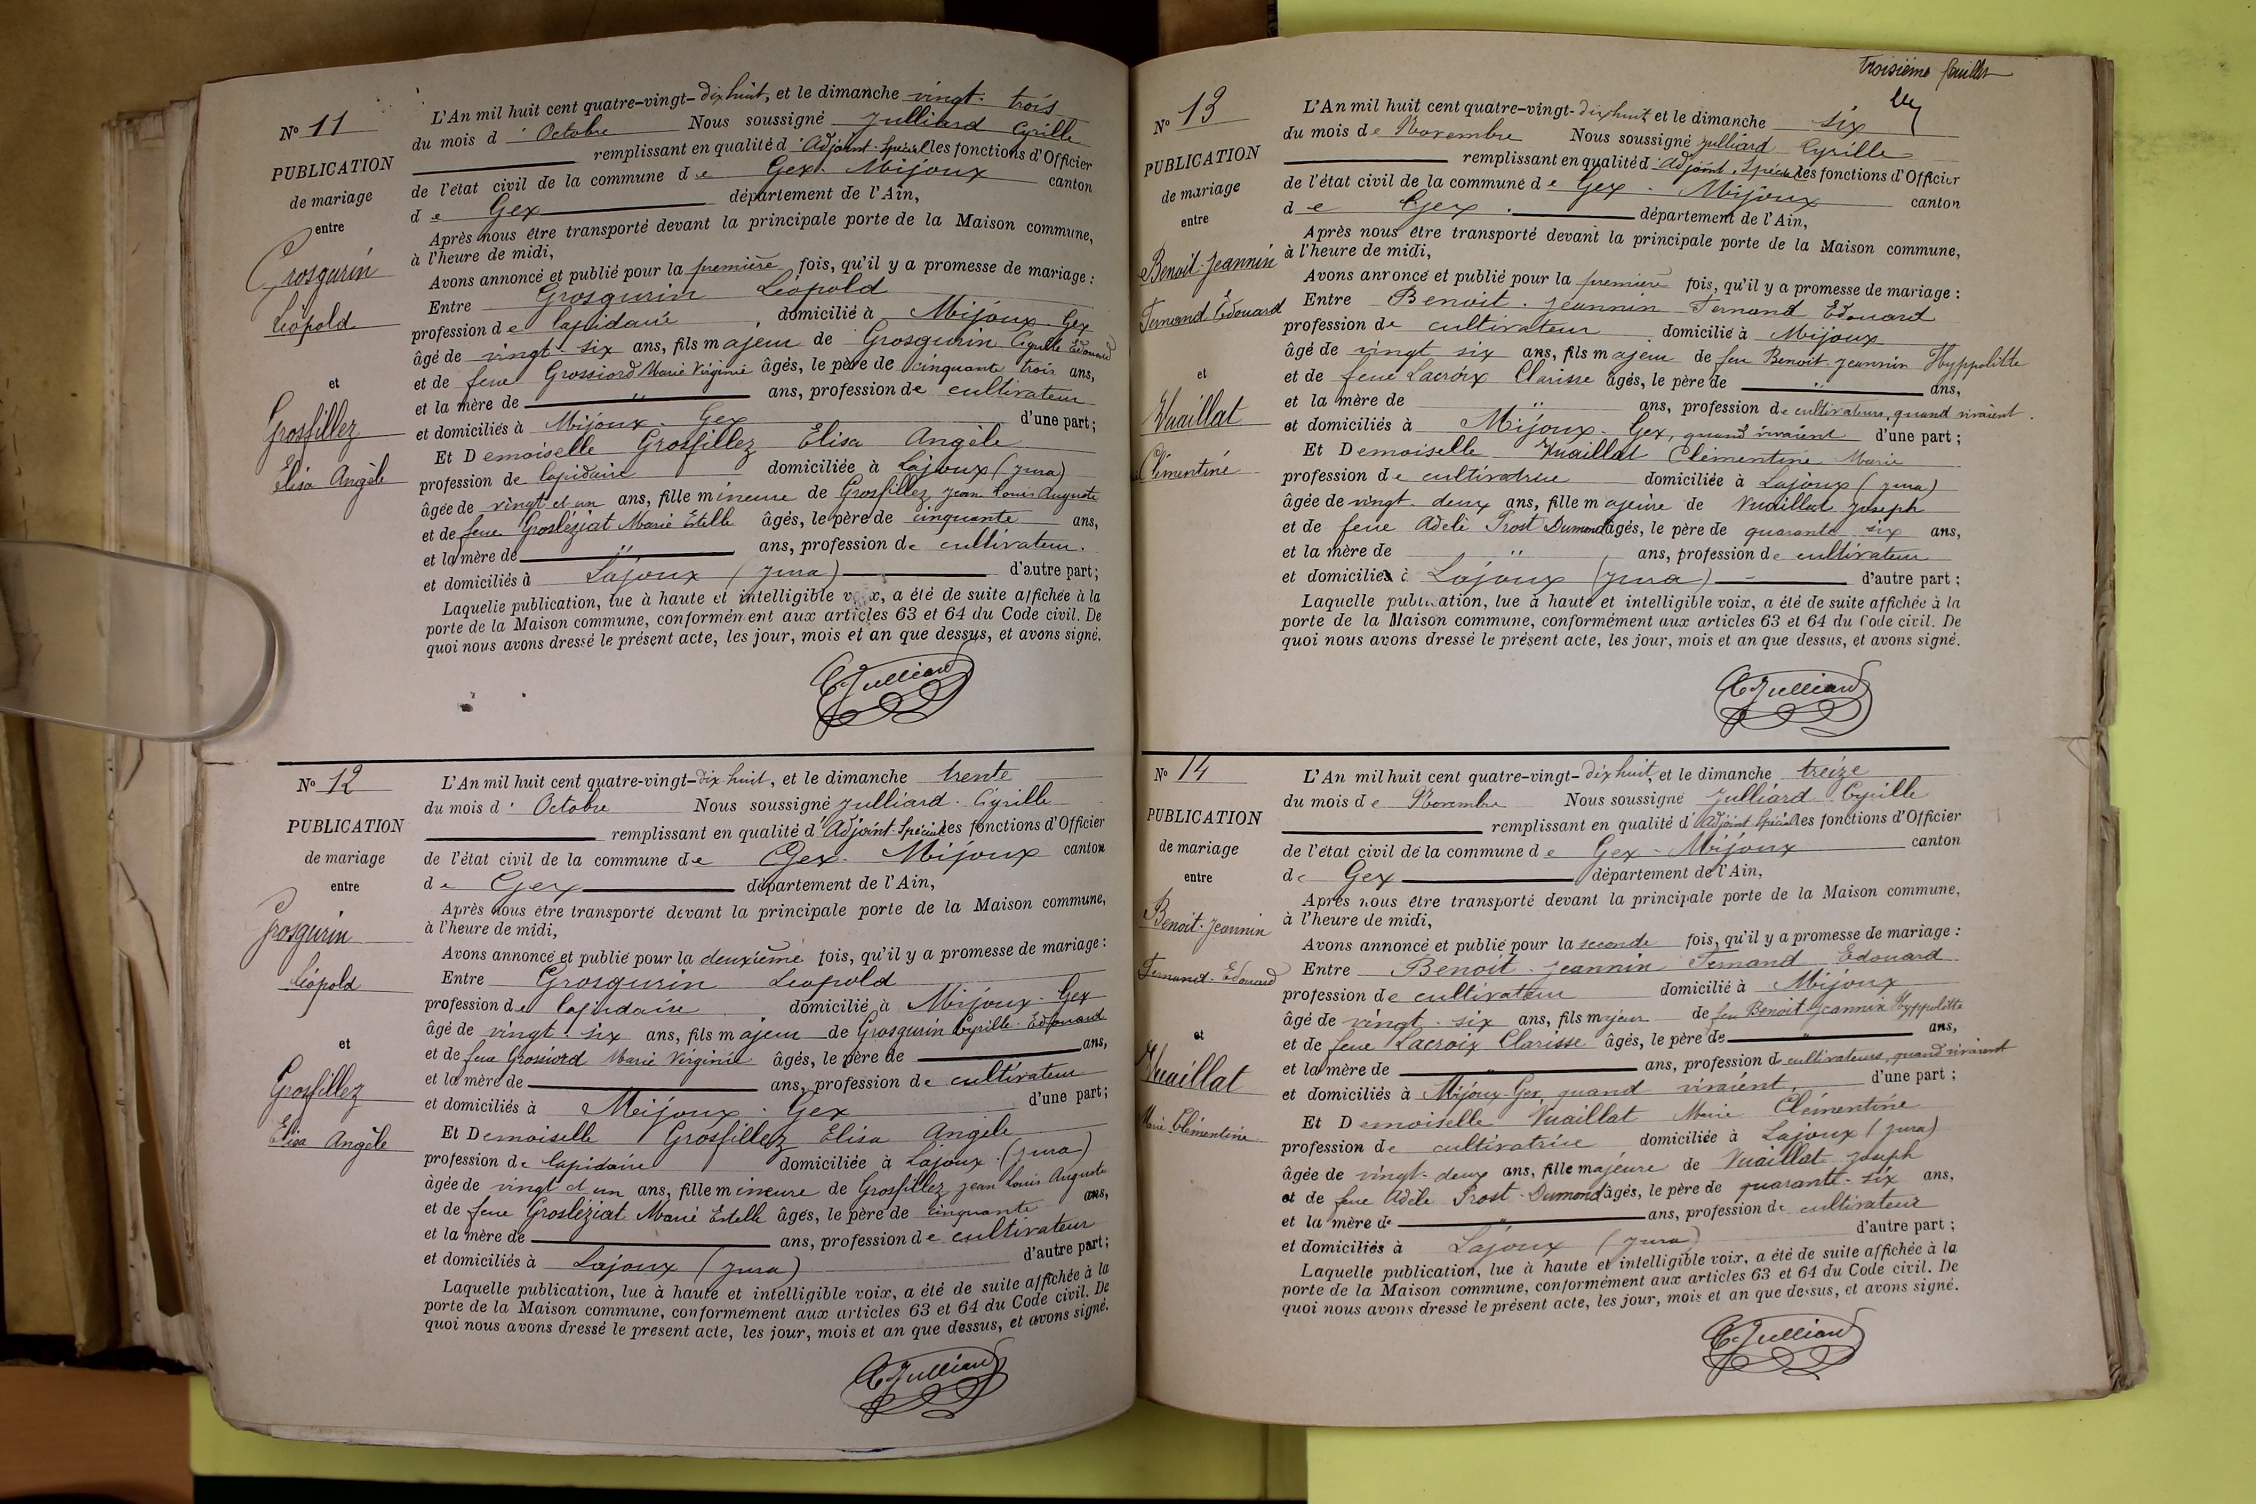 No 11
PUBLICATION
de mariage
entre
Grosgurin
Léopold
et
Grosfillez
Elisa Angèle
L'An mil huit cent quatre-vingt-dix huit, et le dimanche vingt-trois
du mois d'Octobre Nous soussigné Julliard Cyrille
remplissant en qualité d'Adjoint-Spécial les fonctions d'Officier
de l'état civil de la commune de Gex-Mijoux canton
de Gex département de l'Ain,
Après nous être transporté devant la principale porte de la Maison commune,
à l'heure de midi,
Avons annoncé et publié pour la première fois, qu'il y a promesse de mariage :
Entre Grosgurin Léopold
profession de lapidaire, domicilié à Mijoux-Gex
âgé de vingt-six ans, fils majeur de Grosgurin Cyrille Edouard
et de feue Grossiord Marie Virginie âgés, le père de cinquante trois ans,
et la mère de " ans, profession de cultivateur
et domiciliés à Mijoux-Gex d'une part ;
Et Demoiselle Grosfillez Elisa Angèle
profession de lapidaire domiciliée à Lajoux (Jura)
âgée de vingt et un ans, fille mineure de Grosfillez Jean Louis Auguste
et de feue Grosléziat Marie Estelle âgés, le père de cinquante ans,
et la mère de " ans, profession de cultivateur.
et domiciliés à Lajoux (Jura) d'autre part ;
Laquelle publication, lue à haute et intelligible voix, a été de suite affichée à la
porte de la Maison commune, conformément aux articles 63 et 64 du Code civil. De
quoi nous avons dressé le présent acte, les jour, mois et an que dessus, et avons signé.
C. Julliard
No 12
PUBLICATION
de mariage
entre
Grosgurin
Léopold
et
Grosfillez
Elisa Angèle
L'An mil huit cent quatre-vingt-dix huit, et le dimanche trente
du mois d'Octobre Nous soussigné Julliard Cyrille
remplissant en qualité d'Adjoint-Spécial les fonctions d'Officier
de l'état civil de la commune de Gex-Mijoux canton
de Gex département de l'Ain,
Après nous être transporté devant la principale porte de la Maison commune,
à l'heure de midi,
Avons annoncé et publié pour la deuxième fois, qu'il y a promesse de mariage :
Entre Grosgurin Léopold
profession de lapidaire domicilié à Mijoux-Gex
âgé de vingt-six ans, fils majeur de Grosgurin Cyrille-Edouard
et de feue Grossiord Marie Virginie âgés, le père de ans,
et la mère de ans, profession de cultivateur
et domiciliés à Mijoux-Gex d'une part ;
Et Demoiselle Grosfillez Elisa Angèle
profession de lapidaire domiciliée à Lajoux (Jura)
âgée de vingt et un ans, fille mineure de Grosfillez Jean Louis Auguste
et de feue Grosléziat Marie Estelle âgés, le père de cinquante ans,
et la mère de ans, profession de cultivateur
et domiciliés à Lajoux (Jura) d'autre part ;
Laquelle publication, lue à haute et intelligible voix, a été de suite affichée à la
porte de la Maison commune, conformément aux articles 63 et 64 du Code civil. De
quoi nous avons dressé le présent acte, les jour, mois et an que dessus, et avons signé.
C. Julliard
troisième feuillet
No 13
PUBLICATION
de mariage
entre
Benoit-Jeannin
Fernand Edouard
et
Vuaillat
Clémentine
L'An mil huit cent quatre-vingt-dix huit et le dimanche six
du mois de Novembre Nous soussigné Julliard Cyrille
remplissant en qualité d'Adjoint-Spécial les fonctions d'Officier
de l'état civil de la commune de Gex-Mijoux canton
de Gex département de l'Ain,
Après nous être transporté devant la principale porte de la Maison commune,
à l'heure de midi,
Avons annoncé et publié pour la première fois, qu'il y a promesse de mariage :
Entre Benoit-Jeannin Fernand Edouard
profession de cultivateur domicilié à Mijoux
âgé de vingt six ans, fils majeur de feu Benoit-Jeannin Hyppolitte
et de feue Lacroix Clarisse âgés, le père de " ans,
et la mère de " ans, profession de cultivateurs, quand vivaient.
et domiciliés à Mijoux-Gex, quand vivaient d'une part ;
Et Demoiselle Vuaillat Clémentine Marie
profession de cultivatrice domiciliée à Lajoux (Jura)
âgée de vingt-deux ans, fille majeure de Vuaillat Joseph
et de feue Adèle Prost Dumond âgés, le père de quarante six ans,
et la mère de " ans, profession de cultivateur
et domiciliés à Lajoux (Jura) d'autre part ;
Laquelle publication, lue à haute et intelligible voix, a été de suite affichée à la
porte de la Maison commune, conformément aux articles 63 et 64 du Code civil. De
quoi nous avons dressé le présent acte, les jour, mois et an que dessus, et avons signé.
C. Julliard
No 14
PUBLICATION
de mariage
entre
Benoit-Jeannin
Fernand-Edouard
et
Vuaillat
Marie Clémentine
L'An mil huit cent quatre-vingt-dix huit, et le dimanche treize
du mois de Novembre Nous soussigné Julliard Cyrille
remplissant en qualité d'Adjoint Spécial les fonctions d'Officier
de l'état civil de la commune de Gex-Mijoux canton
de Gex département de l'Ain,
Après nous être transporté devant la principale porte de la Maison commune,
à l'heure de midi,
Avons annoncé et publié pour la seconde fois, qu'il y a promesse de mariage :
Entre Benoit-Jeannin Fernand Edouard
profession de cultivateur domicilié à Mijoux
âgé de vingt-six ans, fils majeur de feu Benoit Jeannin Hyppolitte
et de feue Lacroix Clarisse âgés, le père de " ans,
et la mère de " ans, profession de cultivateurs, quand vivaient
et domiciliés à Mijoux-Gex quand vivaient, d'une part ;
Et Demoiselle Vuaillat Marie Clémentine
profession de cultivatrice domiciliée à Lajoux (Jura)
âgée de vingt-deux ans, fille majeure de Vuaillat Joseph
et de feue Adèle Prost-Dumond âgés, le père de quarante-six ans,
et la mère de " ans, profession de cultivateur
et domiciliés à Lajoux (Jura) d'autre part ;
Laquelle publication, lue à haute et intelligible voix, a été de suite affichée à la
porte de la Maison commune, conformément aux articles 63 et 64 du Code civil. De
quoi nous avons dressé le présent acte, les jour, mois et an que dessus, et avons signé.
C. Julliard